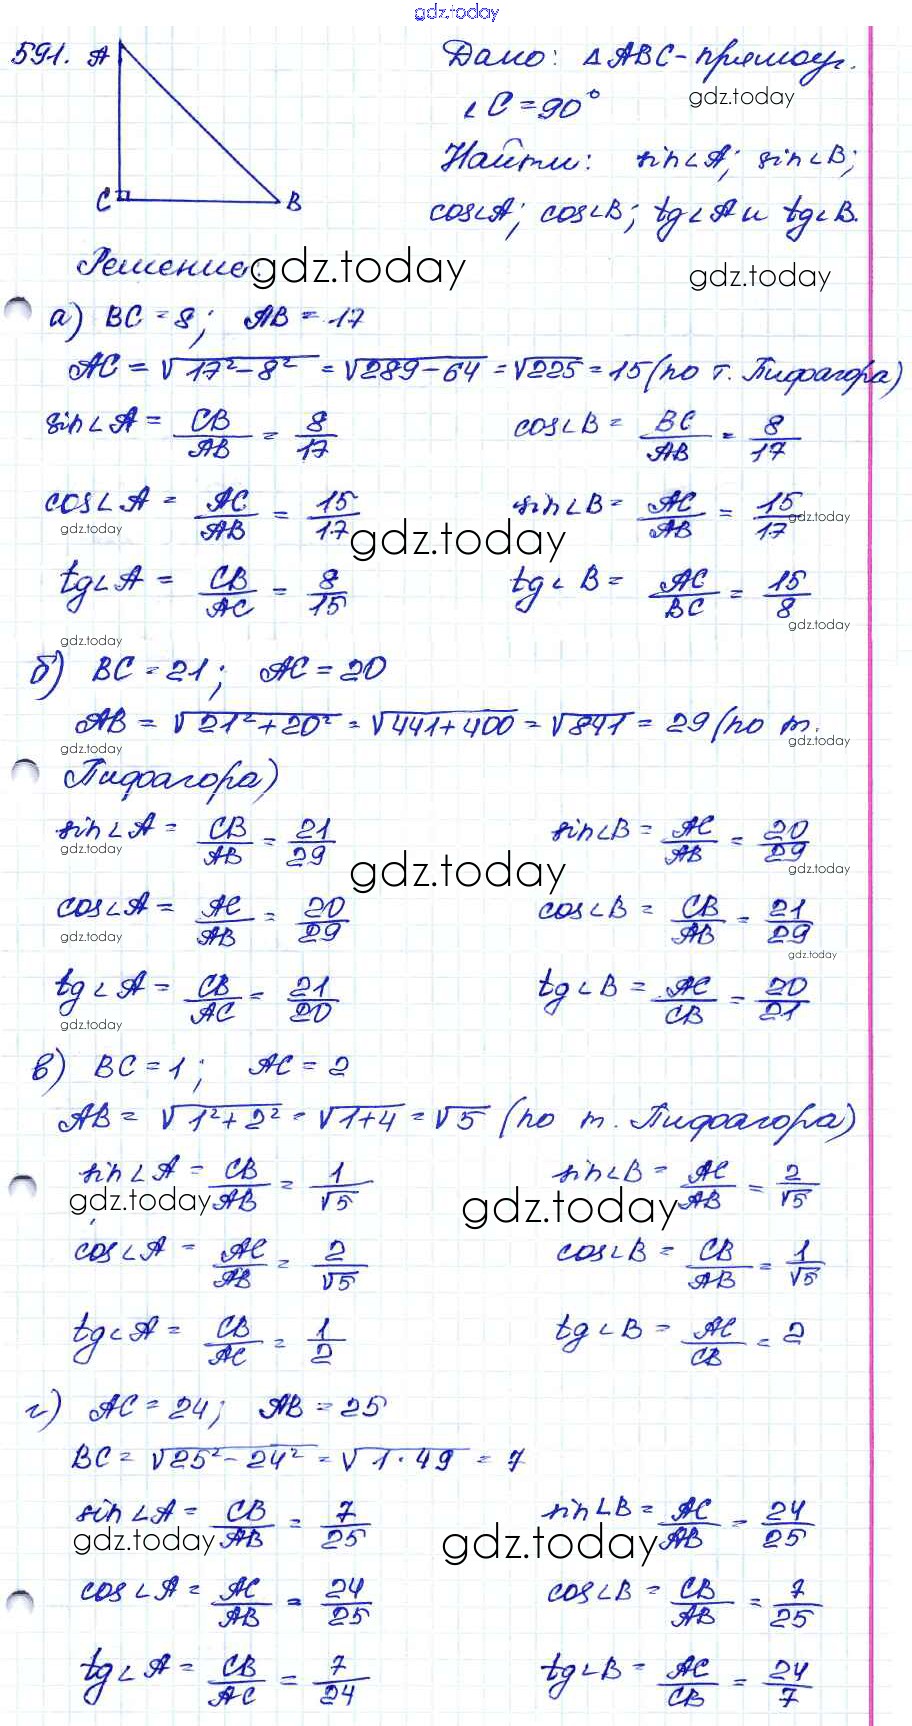 gdz.today
591. A
Дано: △ABC - прямоуг.
gdz.today
∠C = 90°
Найти: sin∠A; sin∠B;
C B
cos∠A; cos∠B; tg∠A и tg∠B.
Решение gdz.today
gdz.today
а) BC = 8; AB = 17
AC = √17² - 8² = √289 - 64 = √225 = 15 (по т. Пифагора)
sin∠A = CB/AB = 8/17 cos∠B = BC/AB = 8/17
cos∠A = AC/AB = 15/17 sin∠B = AC/AB = 15/17
gdz.today gdz.today gdz.today
tg∠A = CB/AC = 8/15 tg∠B = AC/BC = 15/8
gdz.today gdz.today
б) BC = 21; AC = 20
AB = √21² + 20² = √441 + 400 = √841 = 29 (по т.
gdz.today gdz.today
Пифагора)
sin∠A = CB/AB = 21/29 sin∠B = AC/AB = 20/29
gdz.today gdz.today gdz.today
cos∠A = AC/AB = 20/29 cos∠B = CB/AB = 21/29
gdz.today gdz.today
tg∠A = CB/AC = 21/20 tg∠B = AC/CB = 20/21
gdz.today
в) BC = 1; AC = 2
AB = √1² + 2² = √1 + 4 = √5 (по т. Пифагора)
sin∠A = CB/AB = 1/√5 sin∠B = AC/AB = 2/√5
gdz.today gdz.today
cos∠A = AC/AB = 2/√5 cos∠B = CB/AB = 1/√5
tg∠A = CB/AC = 1/2 tg∠B = AC/CB = 2
г) AC = 24; AB = 25
BC = √25² - 24² = √1 · 49 = 7
sin∠A = CB/AB = 7/25 sin∠B = AC/AB = 24/25
gdz.today gdz.today
cos∠A = AC/AB = 24/25 cos∠B = CB/AB = 7/25
tg∠A = CB/AC = 7/24 tg∠B = AC/CB = 24/7